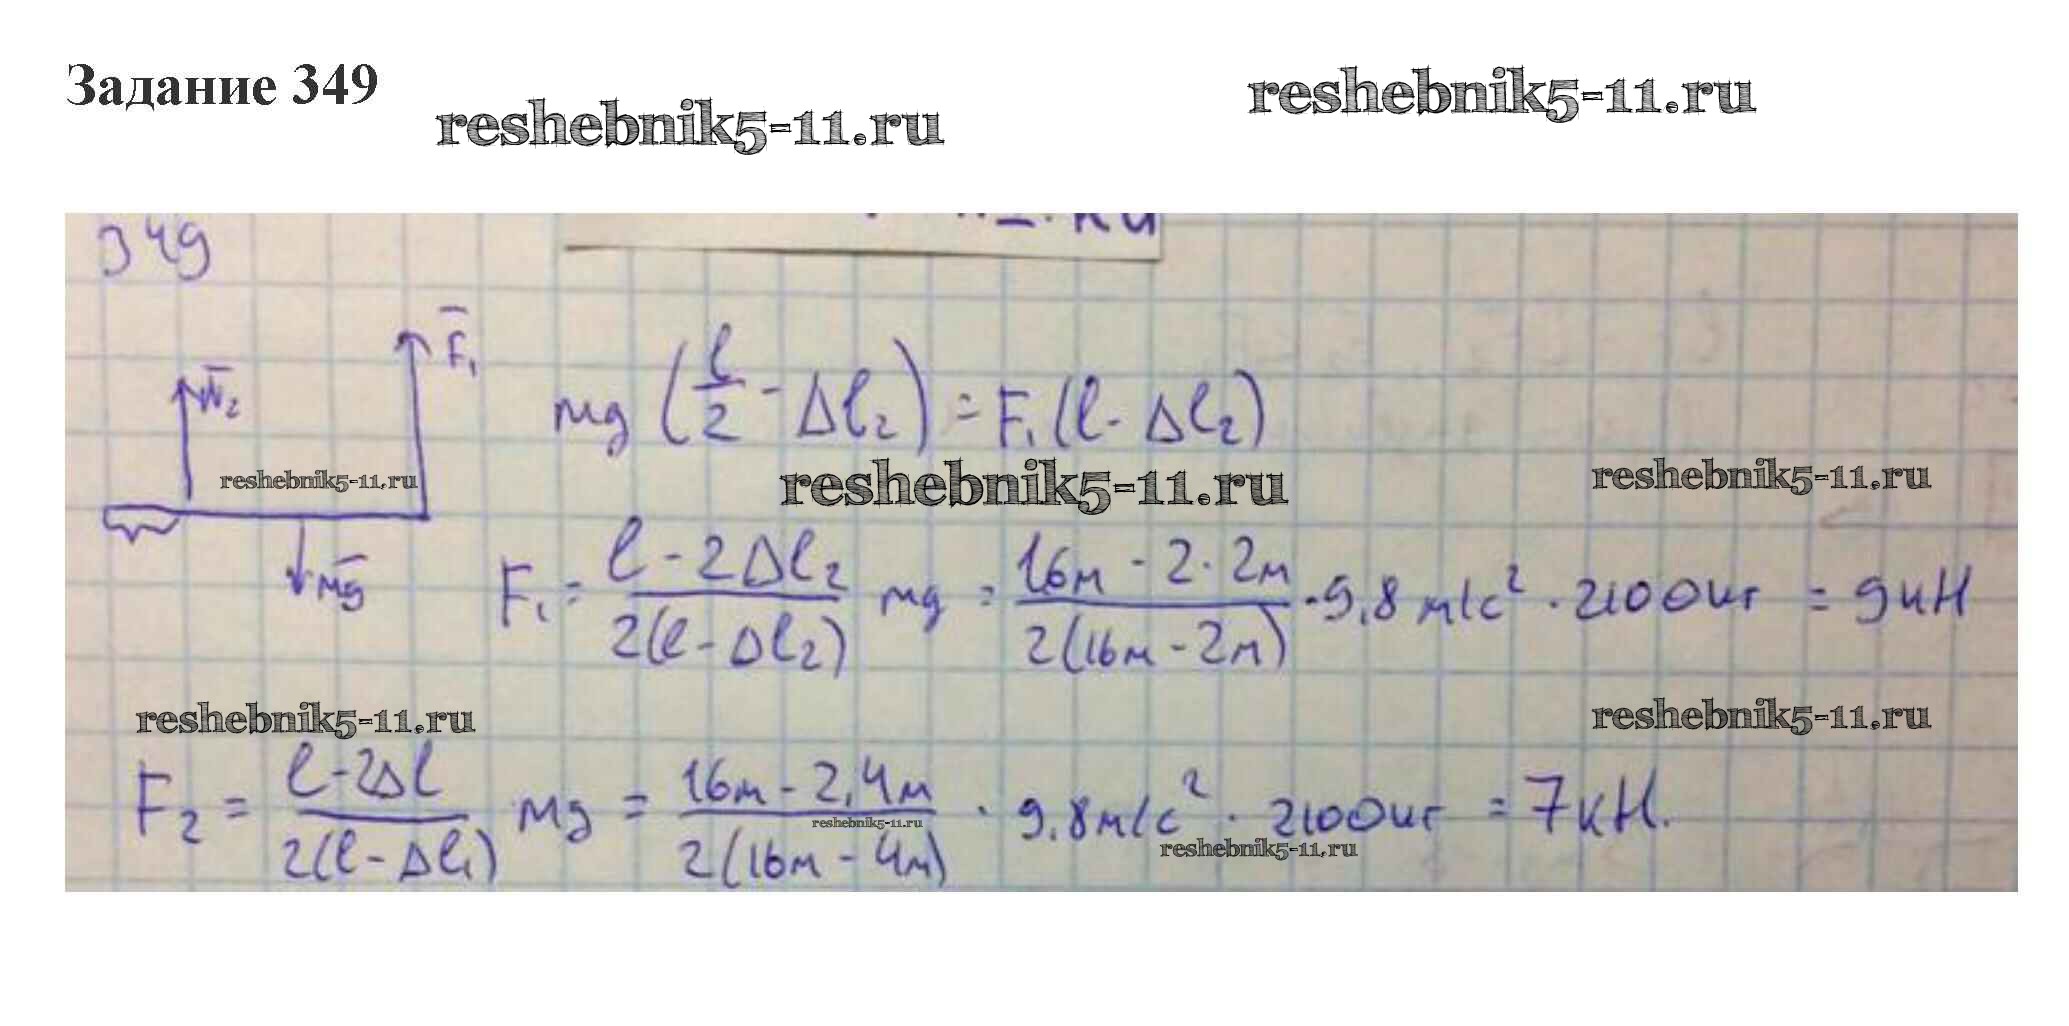 Задание 349
reshebnik5-11.ru
reshebnik5-11.ru
349
N̅₂
F̅₁
mg̅
reshebnik5-11.ru
mg (l/2 - Δl₂) = F₁ (l - Δl₂)
reshebnik5-11.ru
reshebnik5-11.ru
F₁ = (l - 2Δl₂)/(2(l - Δl₂)) mg = (16м - 2 · 2м)/(2(16м - 2м)) · 9,8 м/с² · 2100кг = 9кН
reshebnik5-11.ru
reshebnik5-11.ru
F₂ = (l - 2Δl)/(2(l - Δl₁)) mg = (16м - 2,4м)/(2(16м - 4м)) · 9,8м/с² · 2100кг = 7кН.
reshebnik5-11.ru
reshebnik5-11.ru